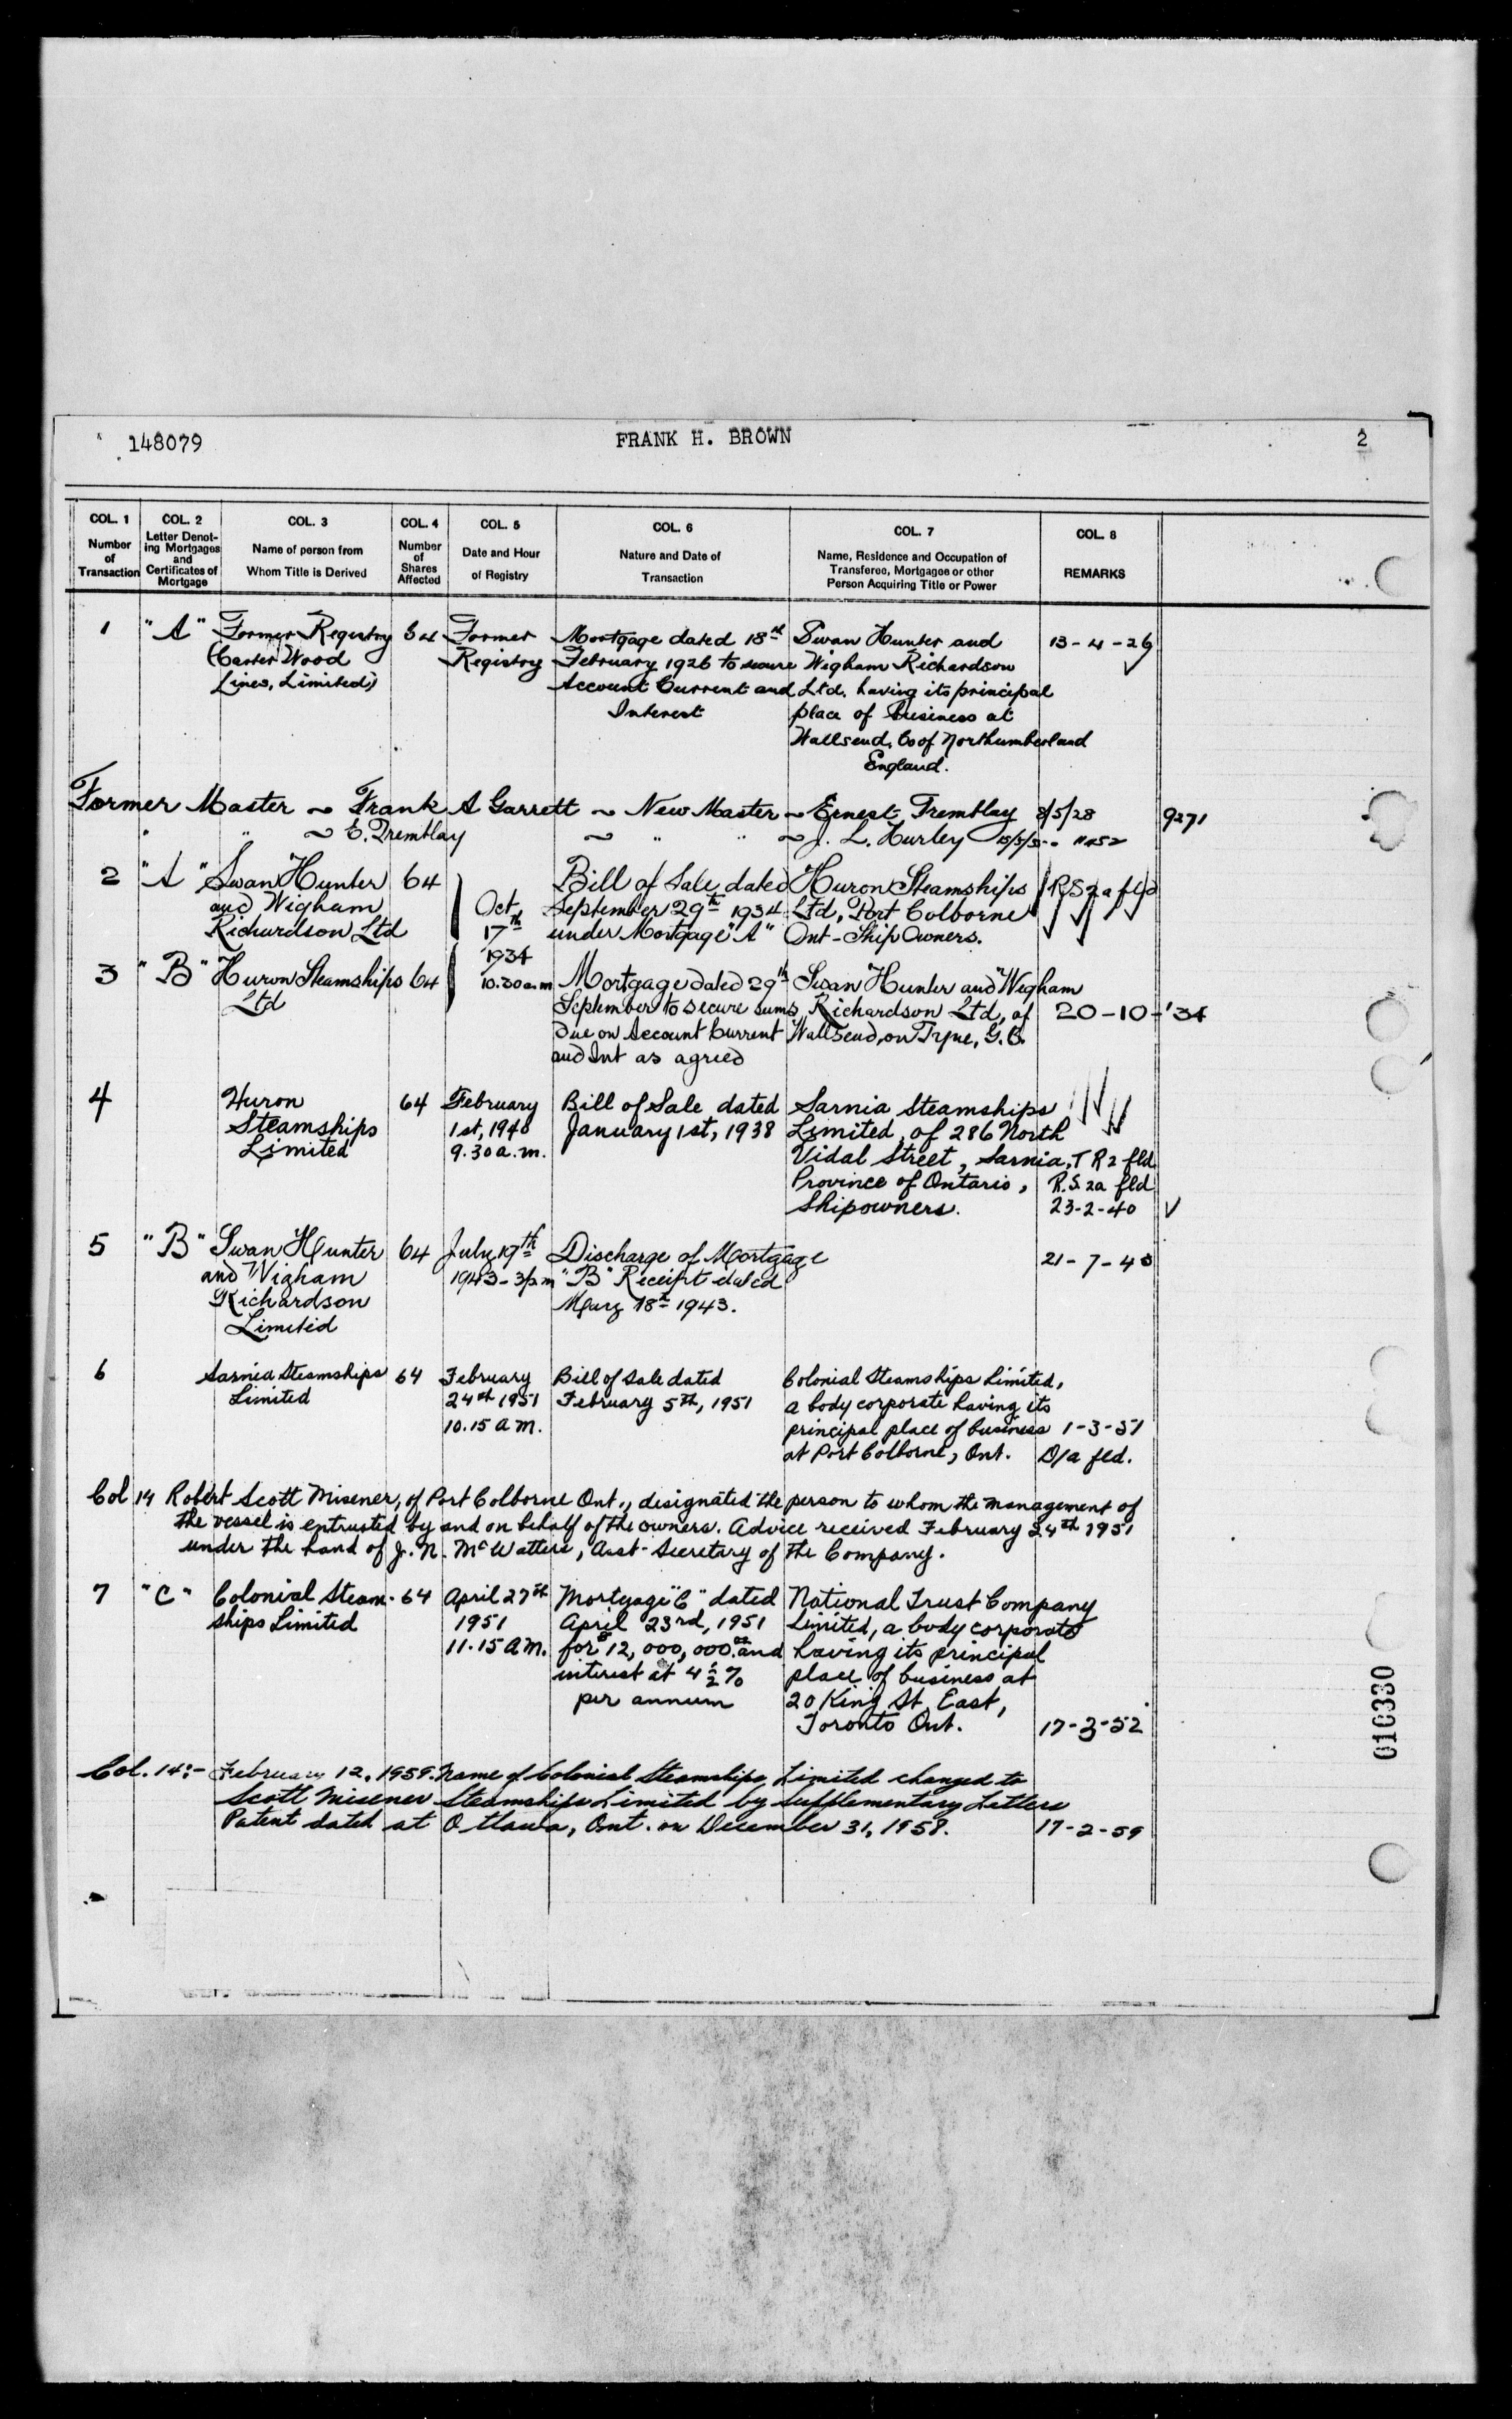 148079 FRANK H. BROWN 2
COL. 1 COL. 2 COL. 3 COL. 4 COL. 5 COL. 6 COL. 7 COL. 8
Number of Transaction
Letter Denoting Mortgages and Certificates of Mortgage
Name of person from Whom Title is Derived
Number of Shares Affected
Date and Hour of Registry
Nature and Date of Transaction
Name, Residence and Occupation of Transferee, Mortgagee or other Person Acquiring Title or Power
REMARKS
1 "A" Former Registry 64 Former Mortgage dated 18th Swan Hunter and 13-4-26
(Carter Wood Registry February 1926 to secure Wigham Richardson
Lines, Limited) Account Current and Ltd. having its principal
Interest place of business at
Wallsend, Co of Northumberland
England.
Former Master ~ Frank A Garrett ~ New Master ~ Ernest Tremblay 8/5/28 9271
" " ~ E. Tremblay ~ " " ~ J. L. Hurley
2 "A" Swan Hunter 64 Bill of Sale dated Huron Steamships R.S 2a fld
and Wigham Oct September 29th 1934 Ltd, Port Colborne
Richardson Ltd 17th under Mortgage "A" Ont - Ship Owners.
1934
3 "B" Huron Steamships 64 10.30 a.m Mortgage dated 29th Swan Hunter and Wigham
Ltd September to secure sums Richardson Ltd, of 20-10-'34
due on Account Current Wallsend, on Tyne, G.B.
and Int as agreed
4 Huron 64 February Bill of Sale dated Sarnia Steamships
Steamships 1st, 1940 January 1st, 1938 Limited, of 286 North
Limited 9.30 a.m. Vidal Street, Sarnia, T R 2 fld
Province of Ontario, R.S. 2a fld
Shipowners. 23-2-40
5 "B" Swan Hunter 64 July 19th Discharge of Mortgage 21-7-43
and Wigham 1943 - 3 p.m "B" Receipt dated
Richardson May 18th 1943.
Limited
6 Sarnia Steamships 64 February Bill of Sale dated Colonial Steamships Limited,
Limited 24th 1951 February 5th, 1951 a body corporate having its
10.15 A M. principal place of business 1-3-51
at Port Colborne, Ont. D/a fld.
Col 14 Robert Scott Misener, of Port Colborne Ont., designated the person to whom the management of
the vessel is entrusted by and on behalf of the owners. Advice received February 24th 1951
under the hand of J. N. McWatters, Asst-Secretary of the Company.
7 "C" Colonial Steam- 64 April 27th Mortgage "C" dated National Trust Company
ships Limited 1951 April 23rd, 1951 Limited, a body corporate
11.15 A M. for $12,000,000.00 and having its principal
interest at 4 1/2 % place of business at
per annum 20 King St. East,
Toronto Ont. 17-3-52
Col. 14:- February 12, 1959. Name of Colonial Steamships Limited changed to
Scott Misener Steamships Limited by Supplementary Letters
Patent dated at Ottawa, Ont. on December 31, 1958. 17-2-59
010330